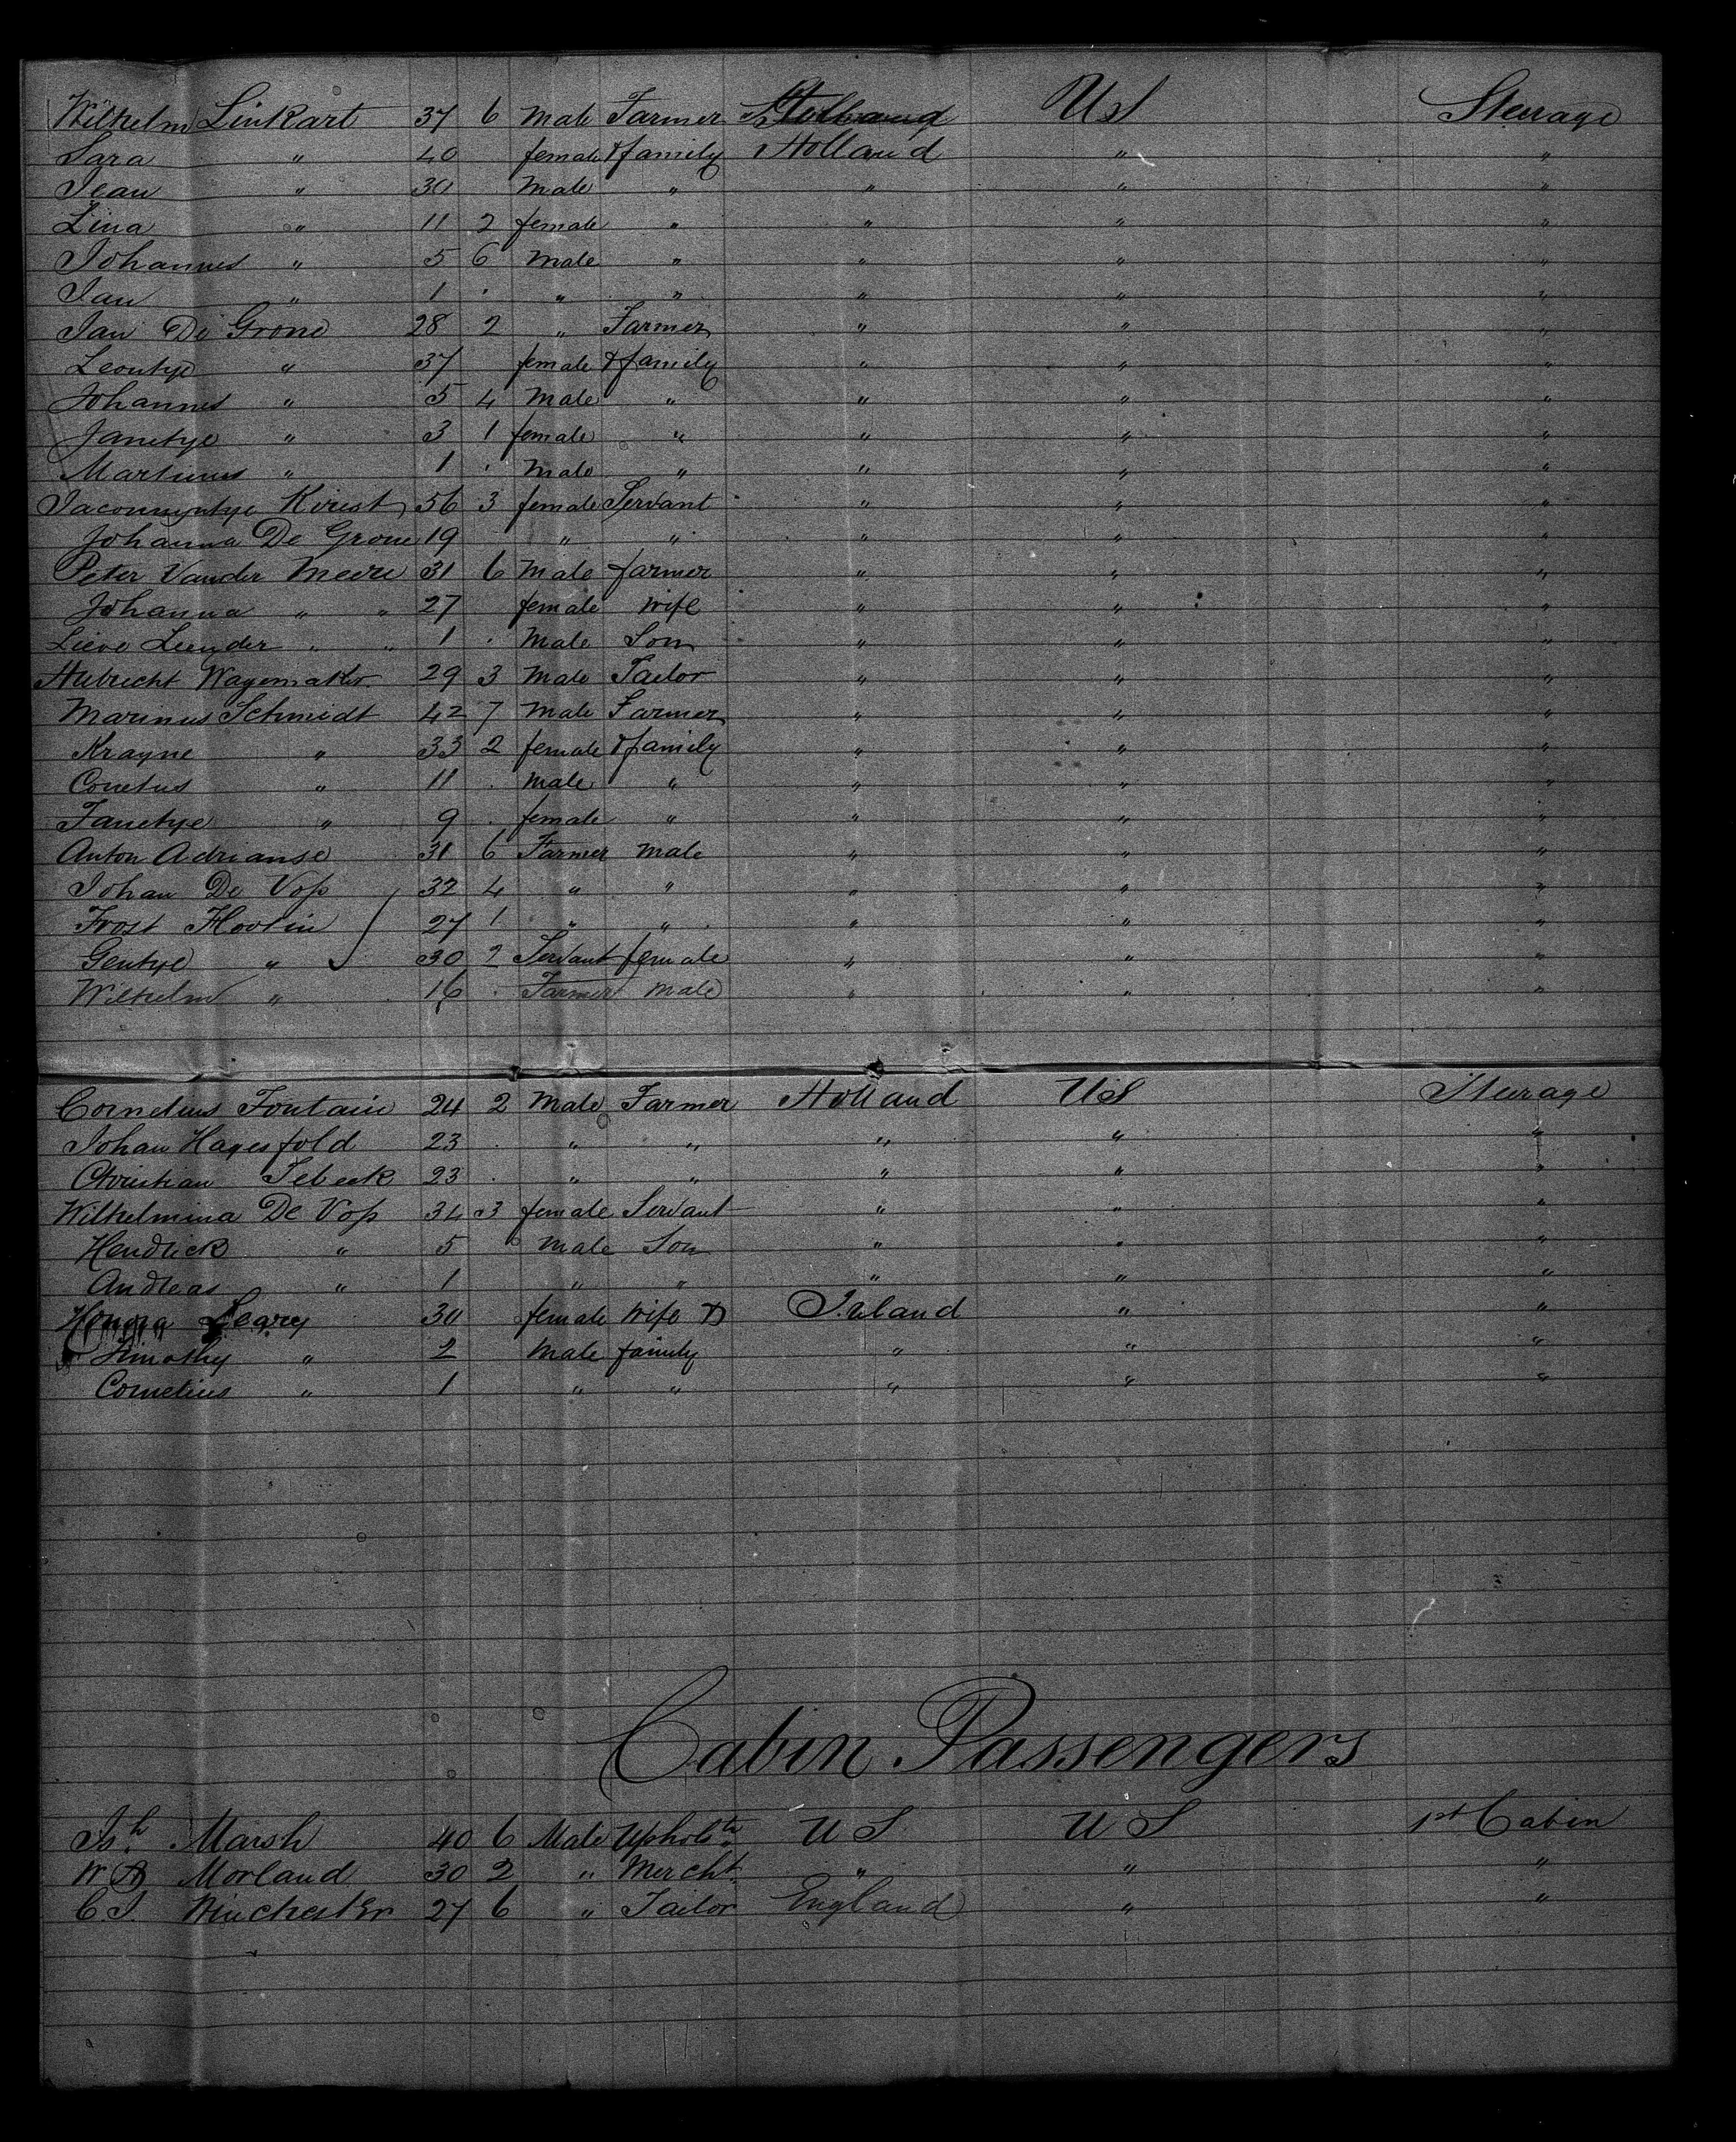 Wilhelm Linkart 37 6 Male Farmer Holland US Steerage
Sara " 40 female & family Holland " "
Jean " 30 Male " " " "
Lina " 11 2 female " " " "
Johannes " 5 6 Male " " " "
Jan " 1 . " " " " "
Jan De Grone 28 2 " Farmer " " "
Leontye " 37 female & family " " "
Johannes " 5 4 Male " " " "
Janetye " 3 1 female " " " "
Martinus " 1 . Male " " " "
56 3 female Servant " " "
Johanna De Grone 19 " " " " "
Peter Vander Meere 31 6 Male farmer " " "
Johanna " " 27 female wife " " "
Lieve Leender " " 1 . Male Son " " "
Hubrecht Wagemaker 29 3 Male Tailor " " "
Marinus Schmidt 42 7 Male Farmer " " "
Krayne " 33 2 female & family " " "
" 11 . Male " " " "
Janetye " 9 . female " " " "
Anton Adrianse 31 6 Farmer Male " " "
Johan De Voss 32 4 " " " " "
Frost 27 1 " " " " "
Gentye " 30 2 Servant female " " "
Wilhelm " 16 . Farmer Male " " "
Cornelius Fontain 24 2 Male Farmer Holland US Steerage
Johan Hagesfold 23 . " " " " "
Christian Tebeek 23 . " " " " "
Wilhelmina De Voss 34 3 female Servant " " "
Hendrick " 5 Male Son " " "
Andreas " 1 " " " " "
Honora Leary 30 female Wife & Ireland " "
Timothy " 2 Male family " " "
Cornelius " 1 " " " " "
Cabin Passengers
Marsh 40 6 Male Upholstr US US 1st Cabin
Morland 30 2 " Mercht " " "
C.J. Winchester 27 6 " Tailor England " "